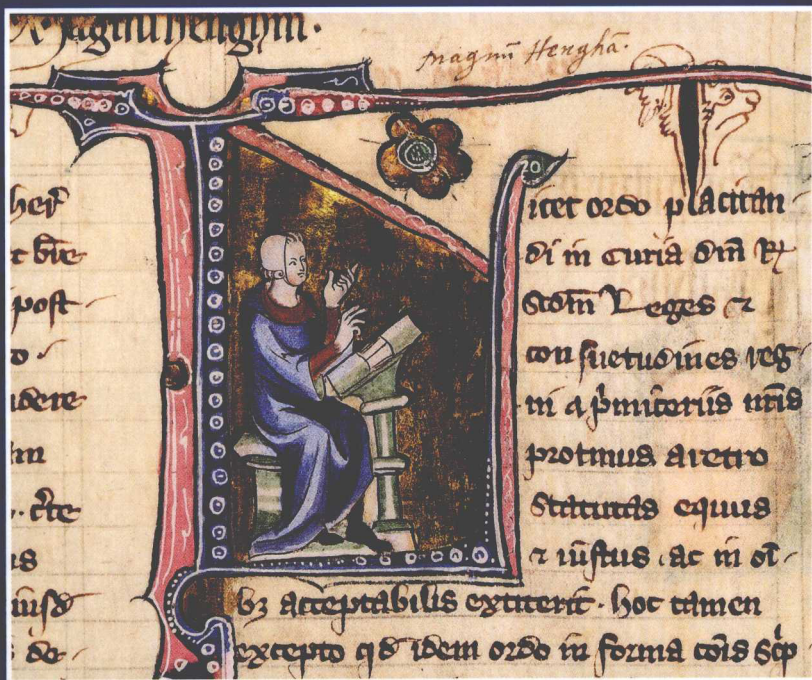 Magnū Henghā.
her̄
t br̄e
post
o
idere
m
cr̄te
us
iusd̄
de
L
icet ordo placitan
di in Curia dn̄i R
Scdm̄ Leges ⁊
consuetudines reg
ni a p̄mitoriis nr̄is
protinus a retro
Statutas equus
⁊ iustus ac in oī
bꝫ acceptabilis extiterit. hoc tamen
excepto qd̄ idem ordo in forma cōis Sc̄p